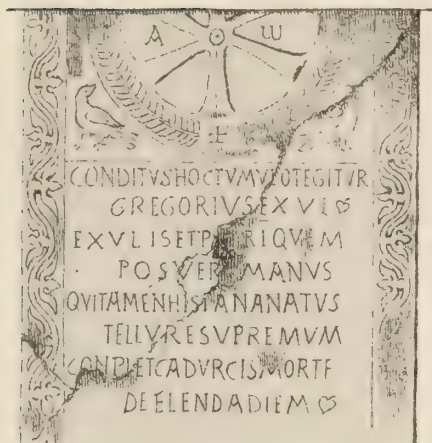 A ω
E
CONDITVSHOCTVMVLOTEGITVR
GREGORIVSEXVL
EXVLISETP RIQVEM
POSVER MANVS
QVITAMENHISPANANATVS
TELLVRESVPREMVM
CONPLETCADVRCISMORTE
DEELENDADIEM